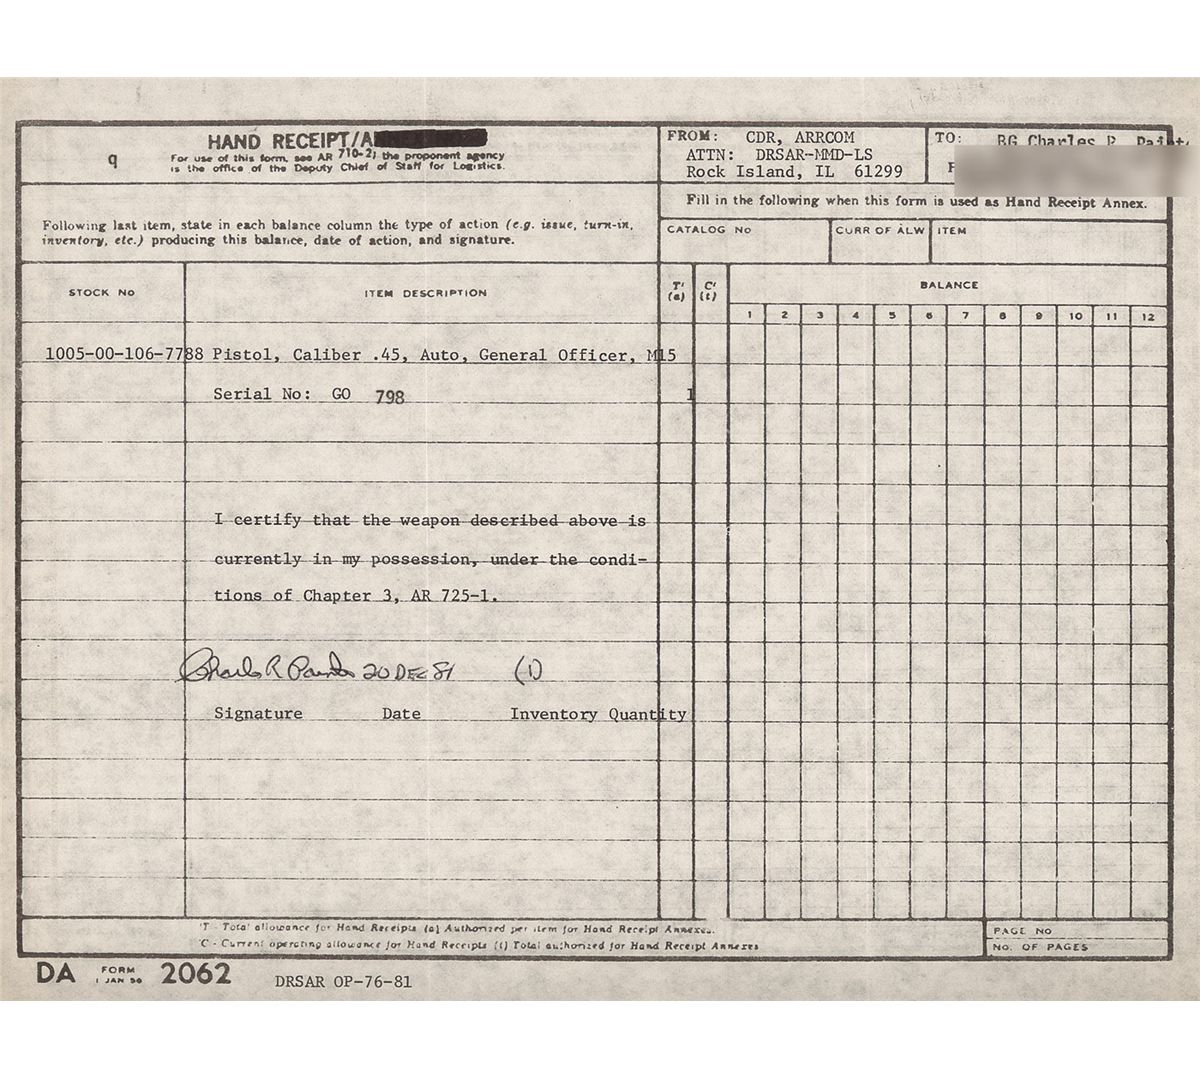 q
HAND RECEIPT/A
For use of this form, see AR 710-2; the proponent agency
is the office of the Deputy Chief of Staff for Logistics.
FROM: CDR, ARRCOM
ATTN: DRSAR-MMD-LS
Rock Island, IL 61299
TO: BG Charles R. Paint
Fill in the following when this form is used as Hand Receipt Annex.
Following last item, state in each balance column the type of action (e.g. issue, turn-in,
inventory, etc.) producing this balance, date of action, and signature.
CATALOG No CURR OF ALW ITEM
STOCK No ITEM DESCRIPTION T' (a) C' (t) BALANCE
1 2 3 4 5 6 7 8 9 10 11 12
1005-00-106-7788 Pistol, Caliber .45, Auto, General Officer, M15
Serial No: GO 798 1
I certify that the weapon described above is
currently in my possession, under the condi-
tions of Chapter 3, AR 725-1.
Charles R Painter 20 DEC 81 (1)
Signature Date Inventory Quantity
'T - Total allowance for Hand Receipts (a) Authorized per item for Hand Receipt Annexes.
'C - Current operating allowance for Hand Receipts (t) Total authorized for Hand Receipt Annexes
PAGE NO
NO. OF PAGES
DA FORM 1 JAN 58 2062 DRSAR OP-76-81